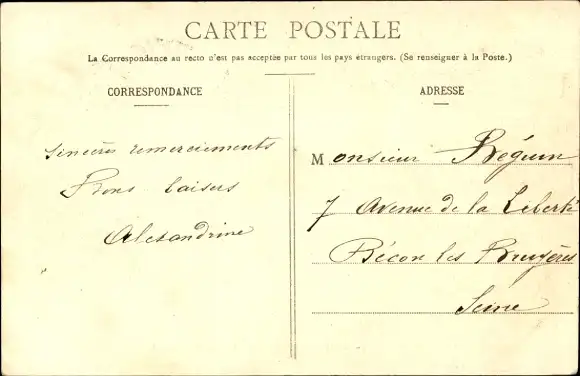 CARTE POSTALE
La Correspondance au recto n'est pas acceptée par tous les pays étrangers. (Se renseigner à la Poste.)
CORRESPONDANCE
sincères remerciements
Bons baisers
Alexandrine
ADRESSE
Monsieur Béguin
7 Avenue de la Liberté
Bécon les Bruyères
Seine